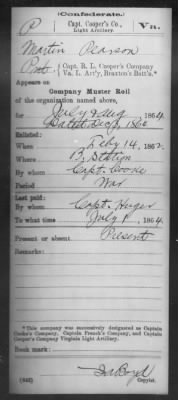 (Confederate.)
P Capt. Cooper's Co., Va.
Light Artillery.
Martin Pearson
Pvt., Capt. R. L. Cooper's Company
Va. L. Art'y, Braxton's Batt'n.*
Appears on
Company Muster Roll
of the organization named above,
for July & Aug, 1864.
Enlisted:
When Feby 14, 1862.
Where B. Station
By whom Capt. Cooke
Period War
Last paid:
By whom Capt. Huger
To what time July 1, 1864.
Present or absent Present
Remarks:
*This company was successively designated as Captain
Cooke's Company, Captain French's Company, and Captain
Cooper's Company Virginia Light Artillery.
Book mark:
(642)
Boyd
Copyist.